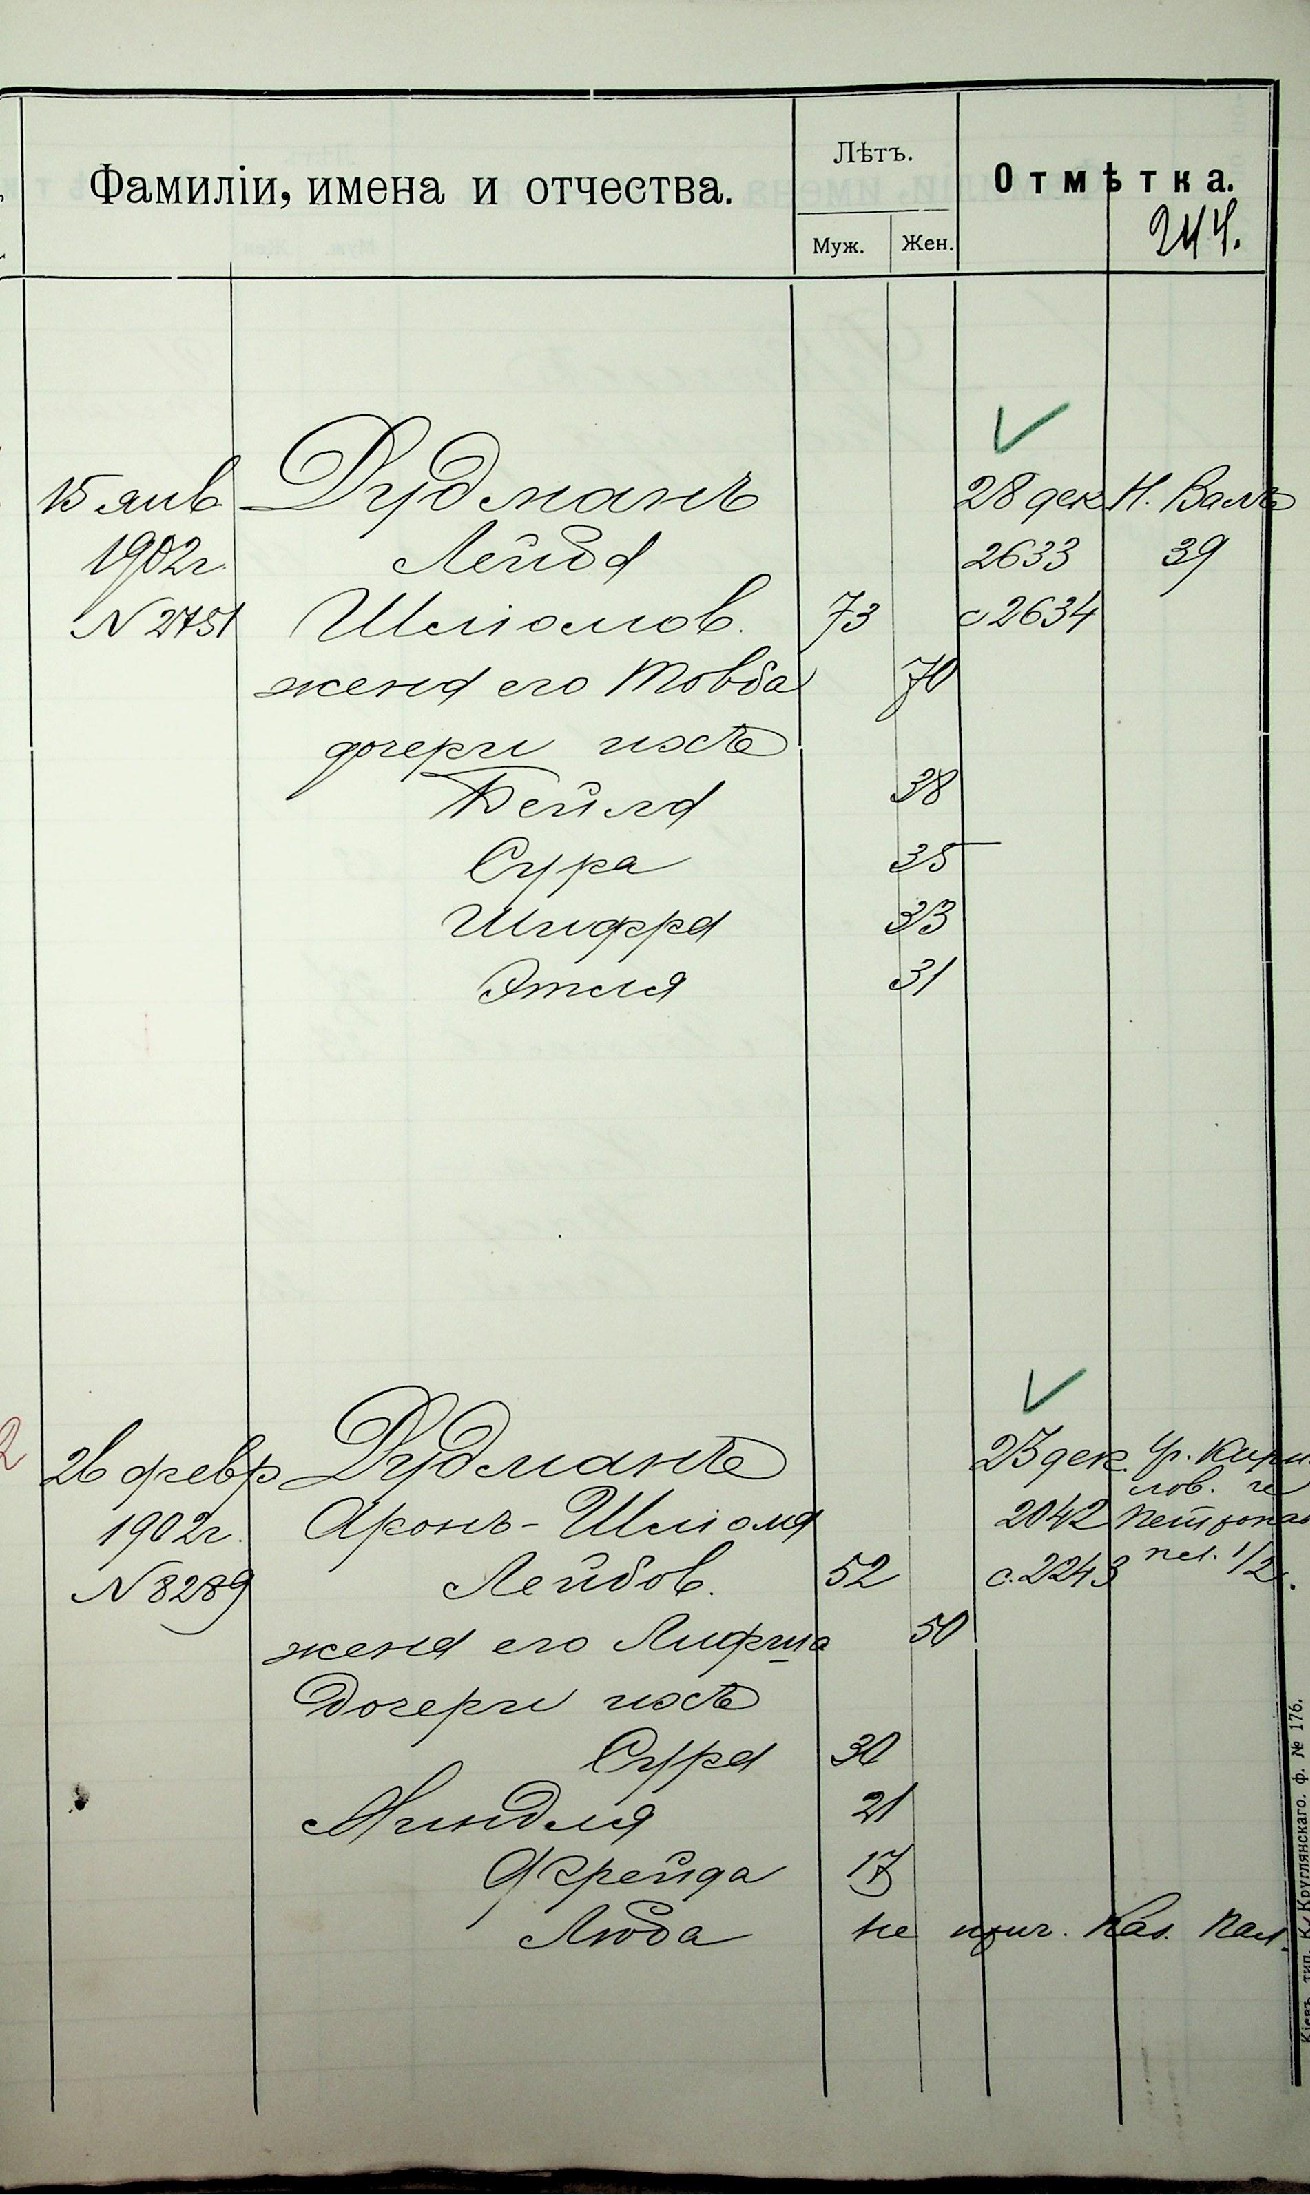 Фамиліи, имена и отчества.
Лѣтъ.
Муж. Жен.
Отмѣтка.
244.
15 янв Дудманъ 28 дек Н. Валъ
1902г. Лейба 2633 39
N 2751 Шлiомов. 73 с 2634
жена его Товба 70
дочери ихъ
Бейла 38
Сура 35
Шифра 33
Этля 31
2 26 февр Дудманъ 23 дек. Ур. Кири
лов. и
1902г. Аронъ-Шлiома 2042
N 8289 Лейбов. 52 с. 2243 1/2.
жена его Лифша 50
Дочери ихъ
Сура 30
Миндля 21
Фрейда 17
Люба не прич. Каз. Пал.
Кіевъ, тип. К. Круглянскаго. ф. № 176.